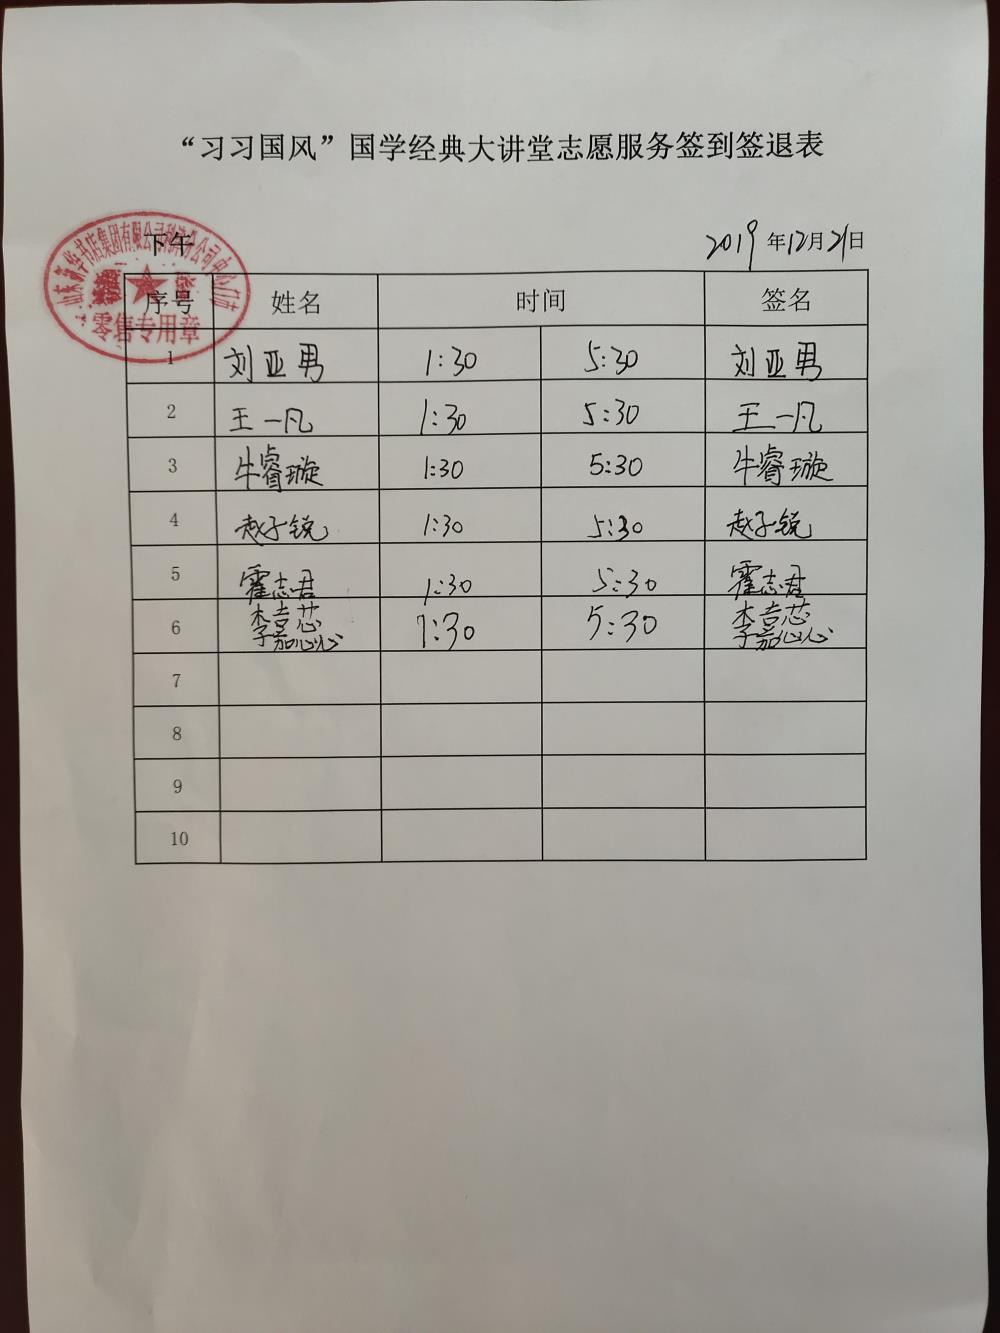 “习习国风”国学经典大讲堂志愿服务签到签退表
下午 2019年12月21日
山东新华书店集团有限公司利津分公司中心门市
零售专用章
序号 姓名 时间 签名
1 刘亚男 1:30 5:30 刘亚男
2 王一凡 1:30 5:30 王一凡
3 牛睿璇 1:30 5:30 牛睿璇
4 赵子锐 1:30 5:30 赵子锐
5 霍志君 1:30 5:30 霍志君
6 李吉芯 1:30 5:30 李吉芯
李嘉心 李嘉心
7
8
9
10